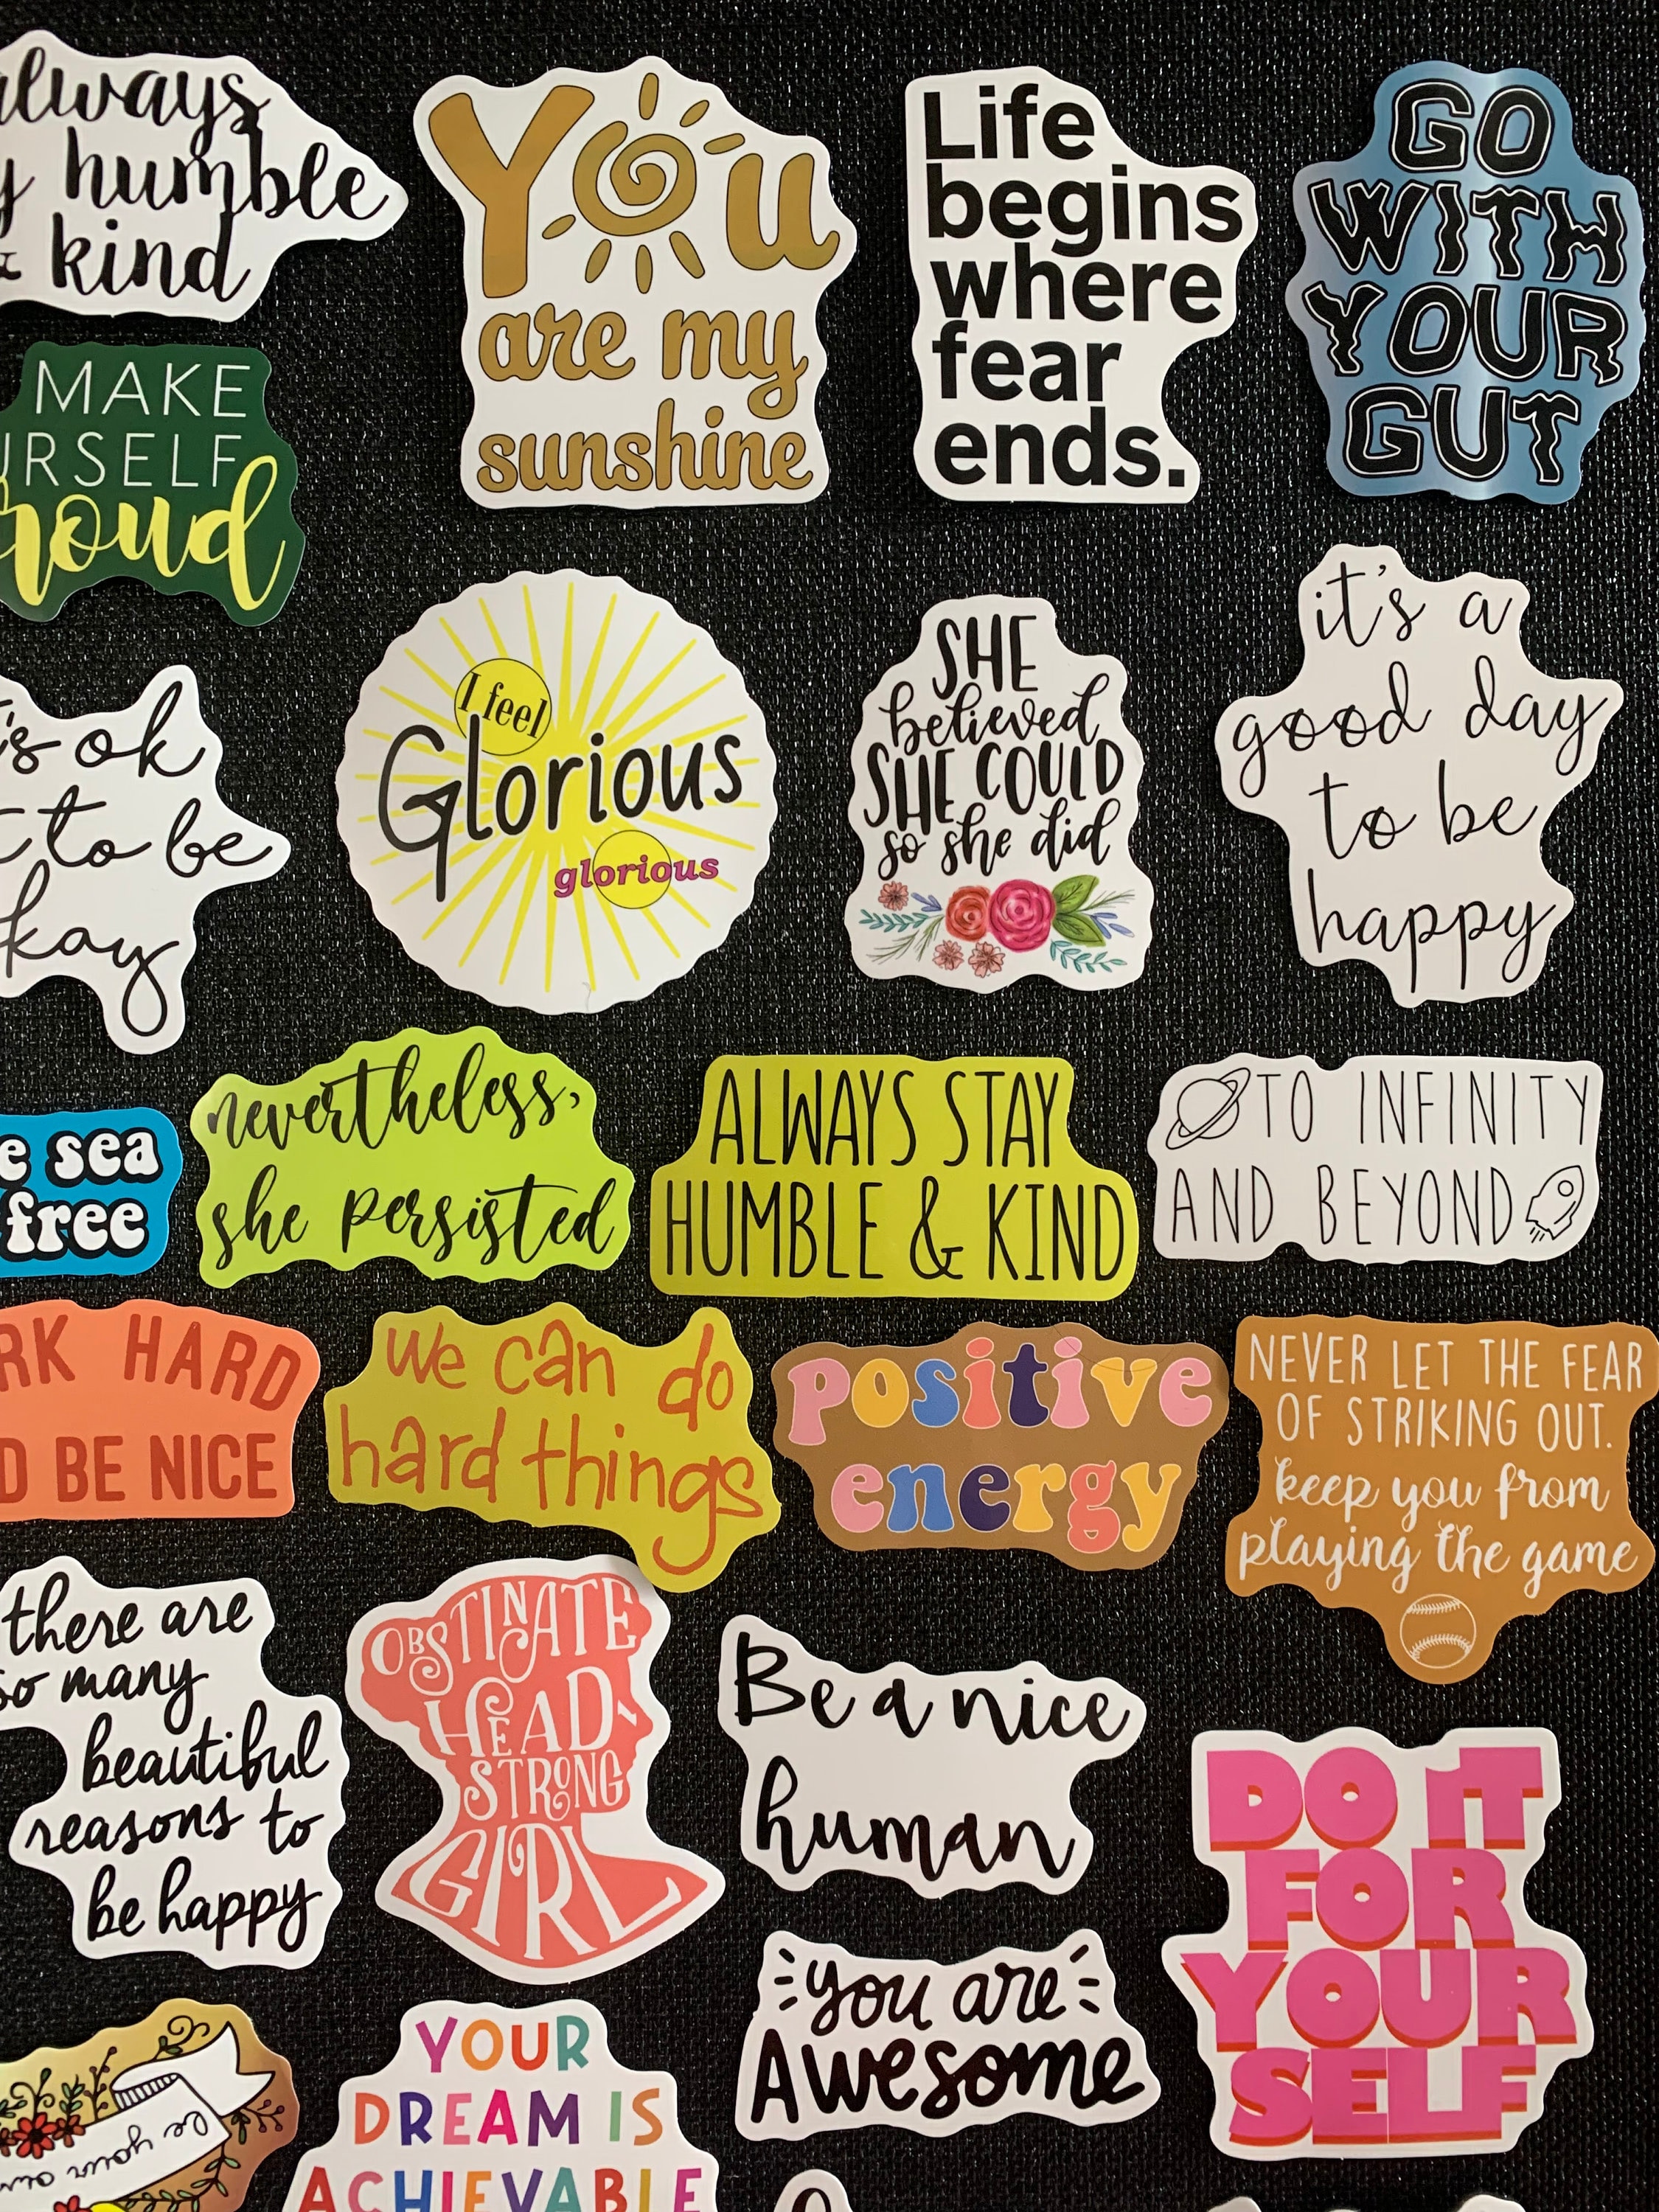 always
humble
& kind
You
are my
sunshine
Life
begins
where
fear
ends.
GO
WITH
YOUR
GUT
MAKE
URSELF
roud
I feel
Glorious
glorious
SHE
believed
SHE COULD
so she did
it's a
good day
to be
happy
's ok
to be
kay
e sea
free
nevertheless,
she persisted
ALWAYS STAY
HUMBLE & KIND
TO INFINITY
AND BEYOND
RK HARD
D BE NICE
we can do
hard things
positive
energy
NEVER LET THE FEAR
OF STRIKING OUT.
keep you from
playing the game
there are
so many
beautiful
reasons to
be happy
OBSTINATE
HEAD-
STRONG
GIRL
Be a nice
human
DO IT
FOR
YOUR
SELF
you are
Awesome
be your own
YOUR
DREAM IS
ACHIEVABLE